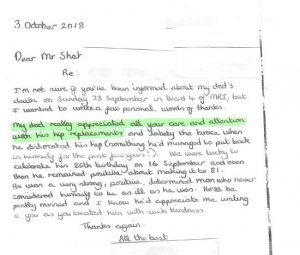 3 October 2018
Dear Mr Shat
Re:
I'm not sure if you've been informed about my dad's
death on Sunday 23 September in Ward 4 of MRI, but
I wanted to write a few personal words of thanks.
My dad really appreciated all your care and attention
with his hip replacements and lately the brace when
he dislocated his hip (something he'd managed to put back
in himself for the past few years!). We were lucky to
celebrate his 80th birthday on 16 September and even
then he remained positive about making it to 81.
He was a very strong, positive, determined man who never
considered himself to be as ill as he was. He'll be
greatly missed and I know he'd appreciate me writing
to you as you treated him with such kindness
Thanks again.
All the best